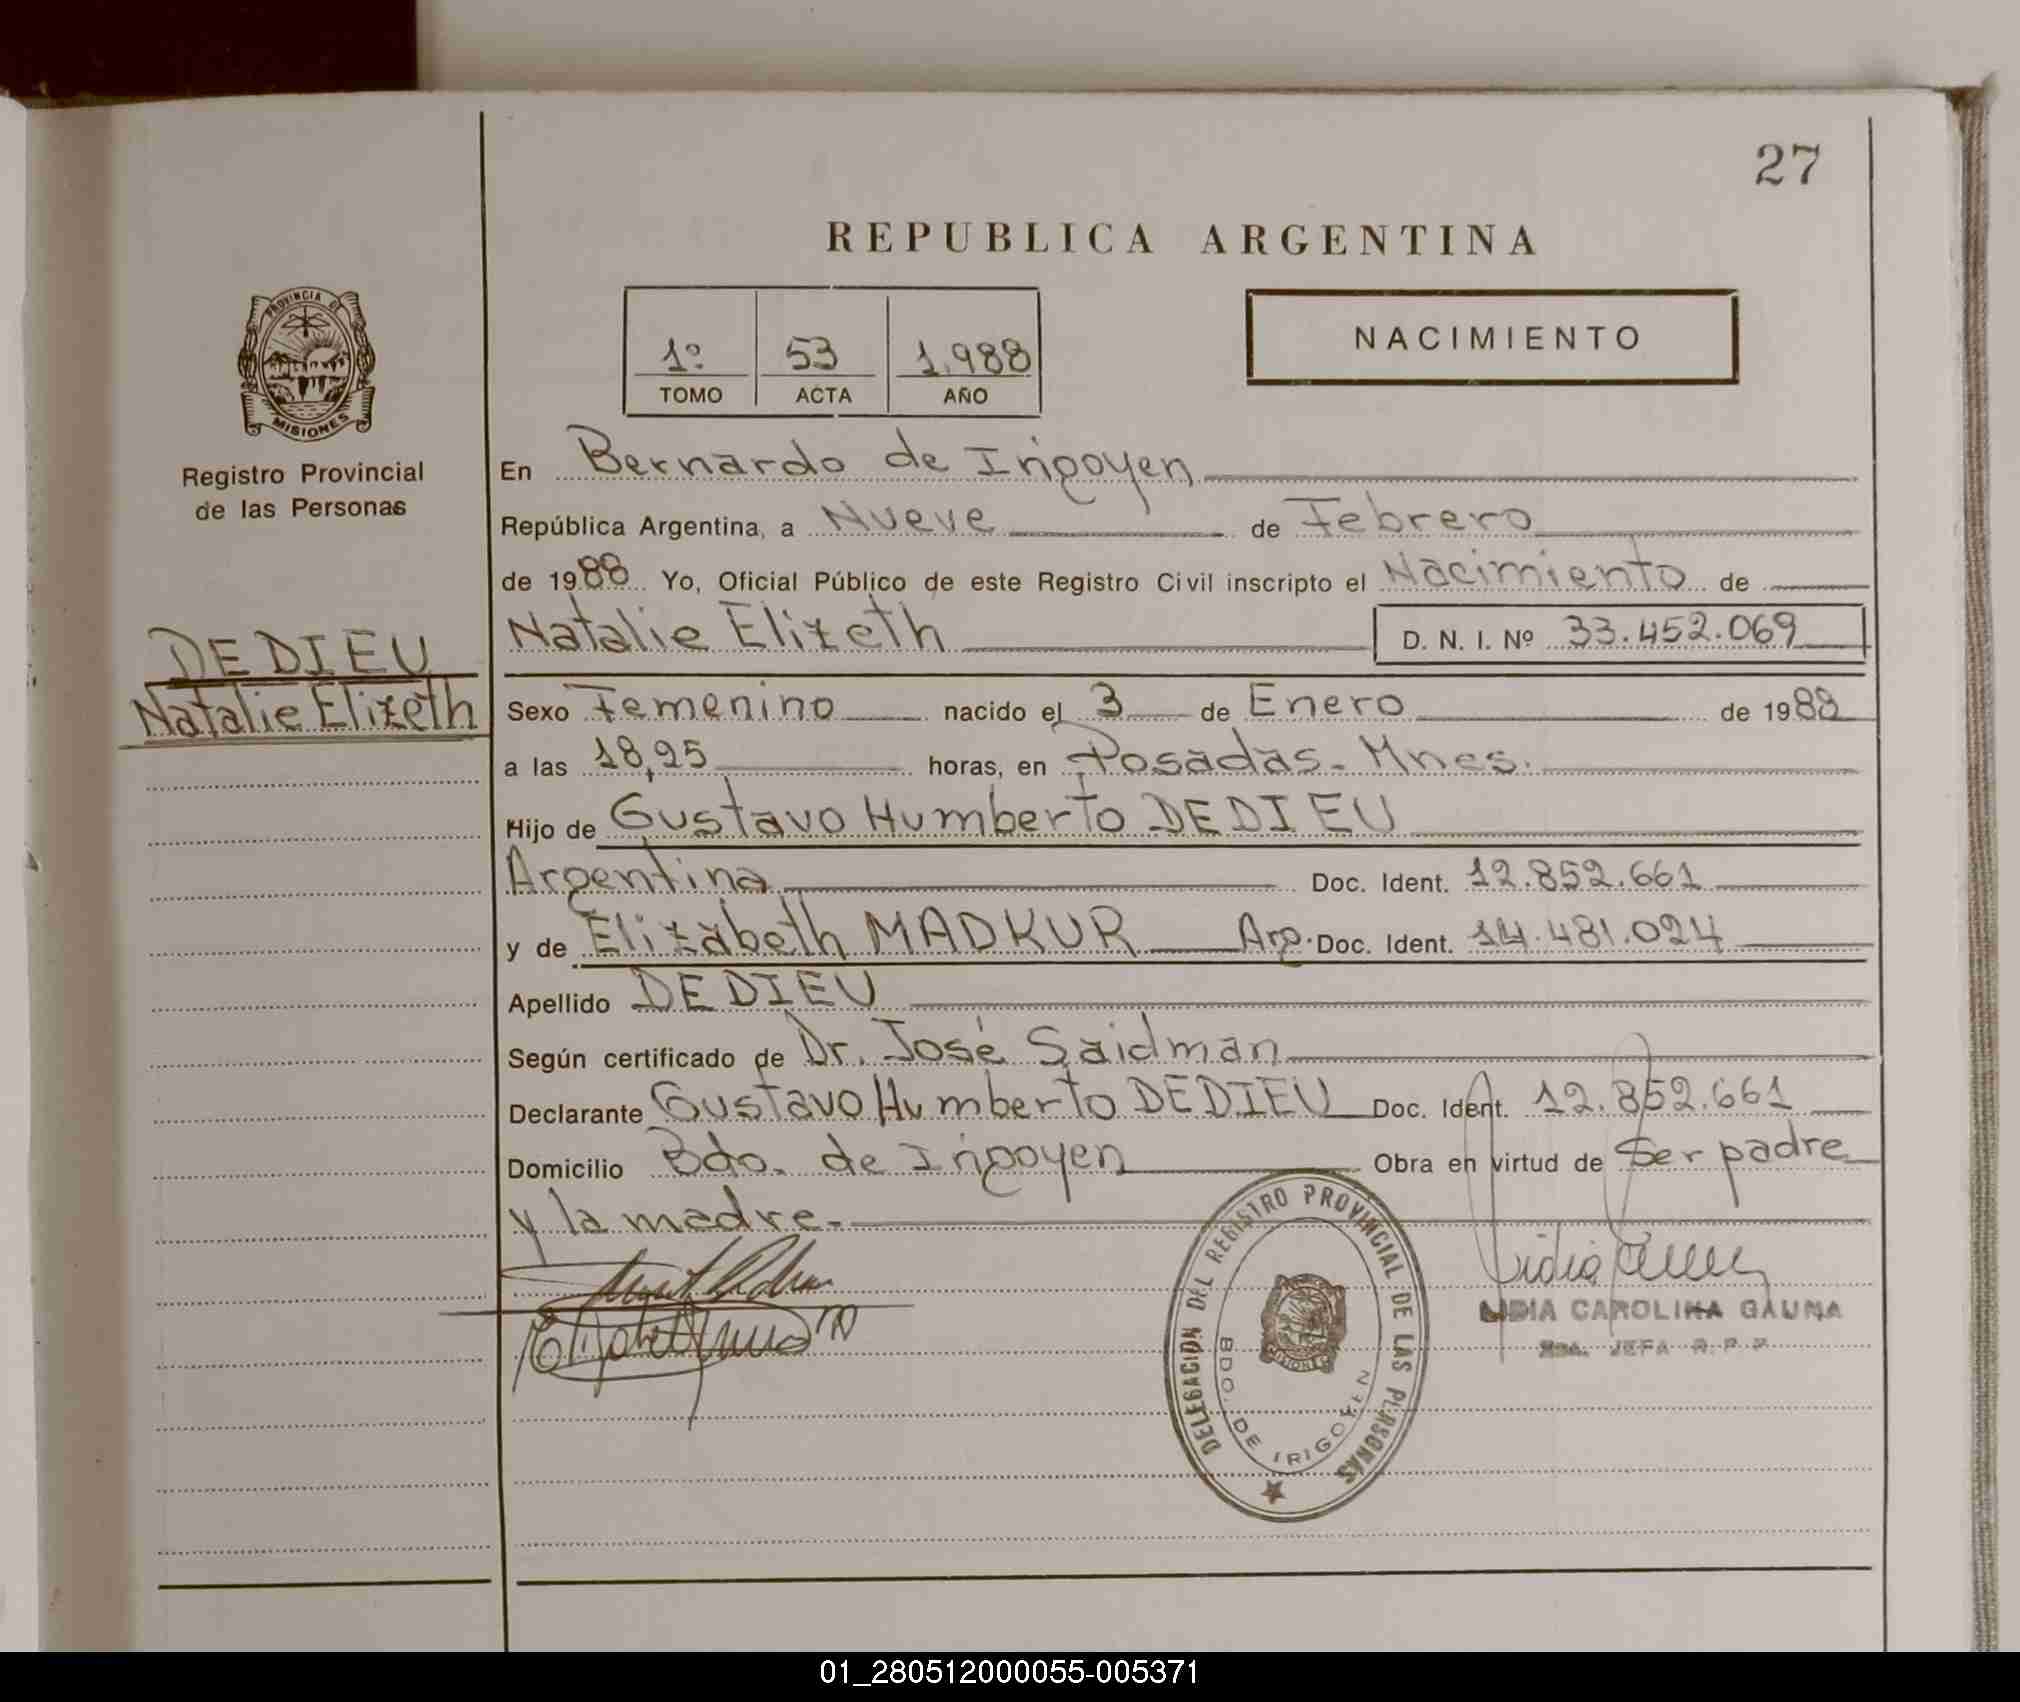 27
REPUBLICA ARGENTINA
PROVINCIA DE
MISIONES
Registro Provincial
de las Personas
DEDIEU
Natalie Elizeth
1º 53 1.988
TOMO ACTA AÑO
NACIMIENTO
En Bernardo de Irigoyen
República Argentina, a Nueve de Febrero
de 1988 Yo, Oficial Público de este Registro Civil inscripto el Nacimiento de
Natalie Elizeth D. N. I. Nº 33.452.069
Sexo Femenino nacido el 3 de Enero de 1988
a las 18,25 horas, en Posadas - Mnes.
Hijo de Gustavo Humberto DEDIEU
Argentina Doc. Ident. 12.852.661
y de Elizabeth MADKUR Arg. Doc. Ident. 14.481.024
Apellido DEDIEU
Según certificado de Dr. José Saidman
Declarante Gustavo Humberto DEDIEU Doc. Ident. 12.852.661
Domicilio Bdo. de Irigoyen Obra en virtud de Ser padre
y la madre.-
DELEGACION DEL REGISTRO PROVINCIAL DE LAS PERSONAS
BDO. DE IRIGOYEN
MISIONES
LIDIA CAROLINA GAUNA
JEFA R.P.P.
01_280512000055-005371